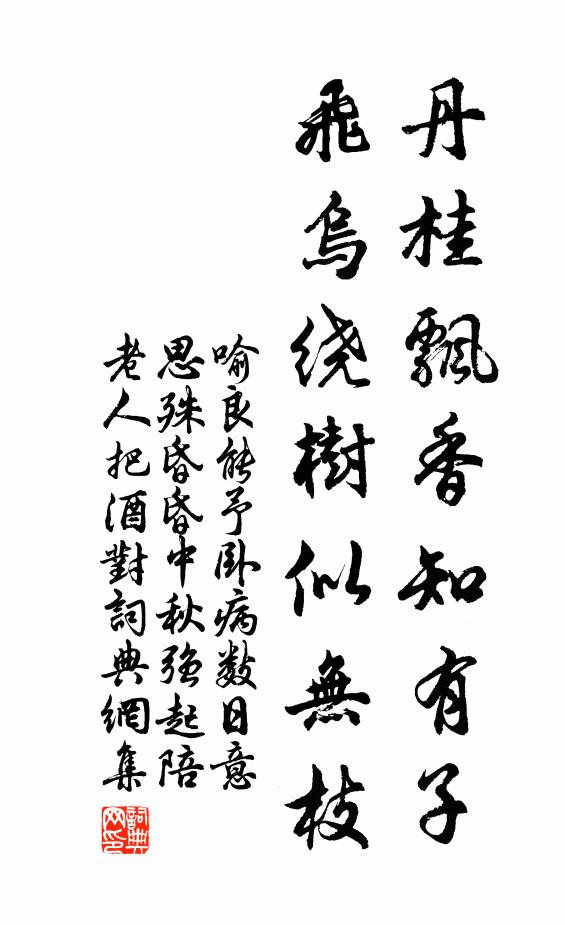 丹桂飄香知有子
飛烏繞樹似無枝
喻良能予卧病数日意
思殊昏昏中秋強起陪
老人把酒對詞典網集
詞典网印